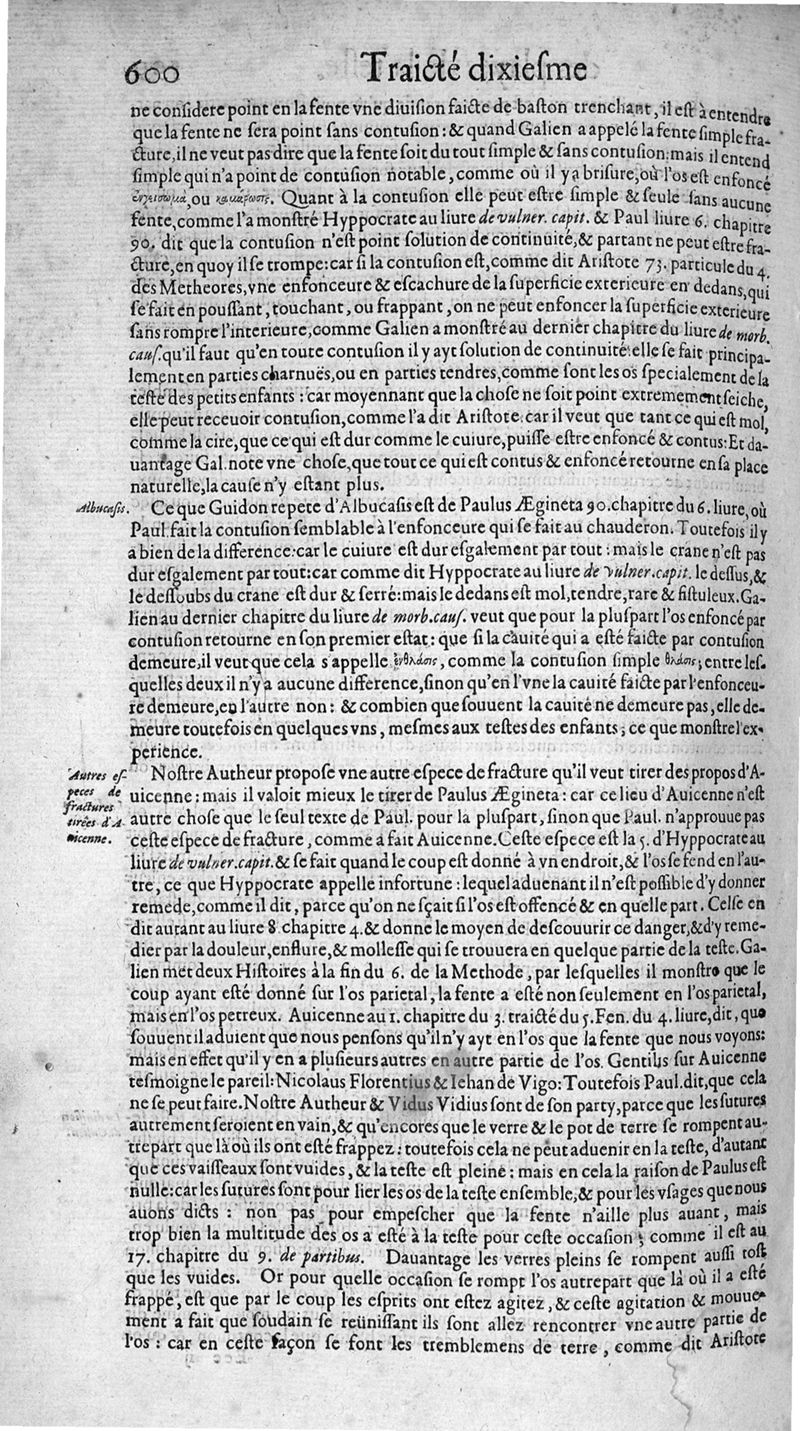 600 Traicté dixiesme
ne considere point en la fente vne diuision faicte de baston trenchant, il est à entendre
que la fente ne sera point sans contusion: & quand Galien a appelé la fente simple fra-
cture, il ne veut pas dire que la fente soit du tout simple & sans contusion: mais il entend
simple qui n'a point de contusion notable, comme où il y a brisure, où l'os est enfoncé
ou Quant à la contusion elle peut estre simple & seule sans aucune
fente, comme l'a monstré Hyppocrate au liure de vulner. capit. & Paul liure 6. chapitre
90. dit que la contusion n'est point solution de continuité, & partant ne peut estre fra-
cture, en quoy il se trompe: car si la contusion est, comme dit Aristote 73. particule du 4.
des Metheores, vne enfonceure & escachure de la superficie exterieure en dedans, qui
se fait en poussant, touchant, ou frappant, on ne peut enfoncer la superficie exterieure
sans rompre l'interieure, comme Galien a monstré au dernier chapitre du liure de morb.
caus. qu'il faut qu'en toute contusion il y ayt solution de continuité: elle se fait principa-
lement en parties charnuës, ou en parties tendres, comme sont les os specialement de la
teste des petits enfants: car moyennant que la chose ne soit point extremement seiche,
elle peut receuoir contusion, comme l'a dit Aristote: car il veut que tant ce qui est mol,
comme la cire, que ce qui est dur comme le cuiure, puisse estre enfoncé & contus: Et da-
uantage Gal. note vne chose, que tout ce qui est contus & enfoncé retourne en sa place
naturelle, la cause n'y estant plus.
Albucasis. Ce que Guidon repete d'Albucasis est de Paulus Ægineta 90. chapitre du 6. liure, où
Paul. fait la contusion semblable à l'enfonceure qui se fait au chauderon. Toutefois il y
a bien de la difference: car le cuiure est dur esgalement par tout: mais le crane n'est pas
dur esgalement par tout: car comme dit Hyppocrate au liure de vulner. capit. le dessus, &
le dessoubs du crane est dur & serré: mais le dedans est mol, tendre, rare & fistuleux. Ga-
lien au dernier chapitre du liure de morb. caus. veut que pour la pluspart l'os enfoncé par
contusion retourne en son premier estat: que si la cauité qui a esté faicte par contusion
demeure, il veut que cela s'appelle ἔνθλασις, comme la contusion simple θλάσις; entre les-
quelles deux il n'y a aucune difference, sinon qu'en l'vne la cauité faicte par l'enfonceu-
re demeure, en l'autre non: & combien que souuent la cauité ne demeure pas, elle de-
meure toutefois en quelques vns, mesmes aux testes des enfants; ce que monstre l'ex-
perience.
Autres es-
peces de
fractures
tirées d'A-
uicenne.
Nostre Autheur propose vne autre espece de fracture qu'il veut tirer des propos d'A-
uicenne: mais il valoit mieux le tirer de Paulus Ægineta: car ce lieu d'Auicenne n'est
autre chose que le seul texte de Paul. pour la pluspart, sinon que Paul. n'approuue pas
ceste espece de fracture, comme a fait Auicenne. Ceste espece est la 5. d'Hyppocrate au
liure de vulner. capit. & se fait quand le coup est donné à vn endroit, & l'os se fend en l'au-
tre, ce que Hyppocrate appelle infortune: lequel aduenant il n'est possible d'y donner
remede, comme il dit, parce qu'on ne sçait si l'os est offencé & en quelle part. Celse en
dit autant au liure 8. chapitre 4. & donne le moyen de descouurir ce danger, & d'y reme-
dier par la douleur, enflure, & mollesse qui se trouuera en quelque partie de la teste. Ga-
lien met deux Histoires à la fin du 6. de la Methode, par lesquelles il monstre que le
coup ayant esté donné sur l'os parietal, la fente a esté non seulement en l'os parietal,
mais en l'os petreux. Auicenne au 1. chapitre du 3. traicté du 5. Fen. du 4. liure, dit, que
souuent il aduient que nous pensons qu'il n'y ayt en l'os que la fente que nous voyons:
mais en effet qu'il y en a plusieurs autres en autre partie de l'os. Gentilis sur Auicenne
tesmoigne le pareil: Nicolaus Florentius & Iehan de Vigo: Toutefois Paul. dit, que cela
ne se peut faire. Nostre Autheur & Vidus Vidius sont de son party, parce que les sutures
autrement seroient en vain, & qu'encores que le verre & le pot de terre se rompent au-
trepart que là où ils ont esté frappez: toutefois cela ne peut aduenir en la teste, d'autant
que ces vaisseaux sont vuides, & la teste est pleine: mais en cela la raison de Paulus est
nulle: car les sutures sont pour lier les os de la teste ensemble, & pour les vsages que nous
auons dicts: non pas pour empescher que la fente n'aille plus auant, mais
trop bien la multitude des os a esté à la teste pour ceste occasion; comme il est au
17. chapitre du 9. de partibus. Dauantage les verres pleins se rompent aussi tost
que les vuides. Or pour quelle occasion se rompt l'os autrepart que là où il a esté
frappé, est que par le coup les esprits ont estez agitez, & ceste agitation & mouue-
ment a fait que soudain se reünissant ils sont allez rencontrer vne autre partie de
l'os: car en ceste façon se font les tremblemens de terre, comme dit Aristote